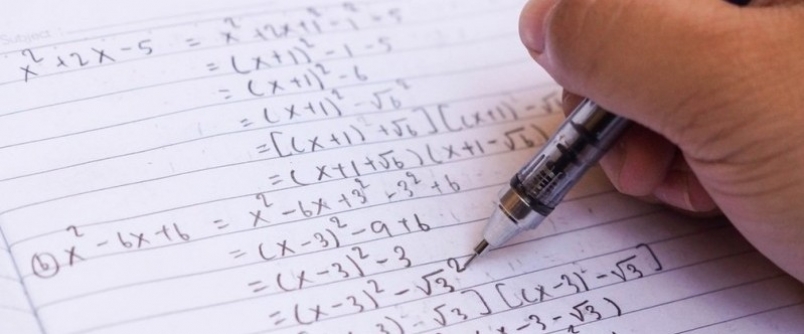 Subject :
x² + 2x - 5 = x² + 2x + 1² - 1² - 5
= (x+1)² - 1 - 5
= (x+1)² - 6
= (x+1)² - √6²
= [(x+1) + √6] [(x+1) - √
= (x+1+√6) (x+1-√6)
(b) x² - 6x + 6 = x² - 6x + 3² - 3² + 6
= (x-3)² - 9 + 6
= (x-3)² - 3
= (x-3)² - √3²
3) - √3] [(x-3) - √3]
x - 3 - √3)